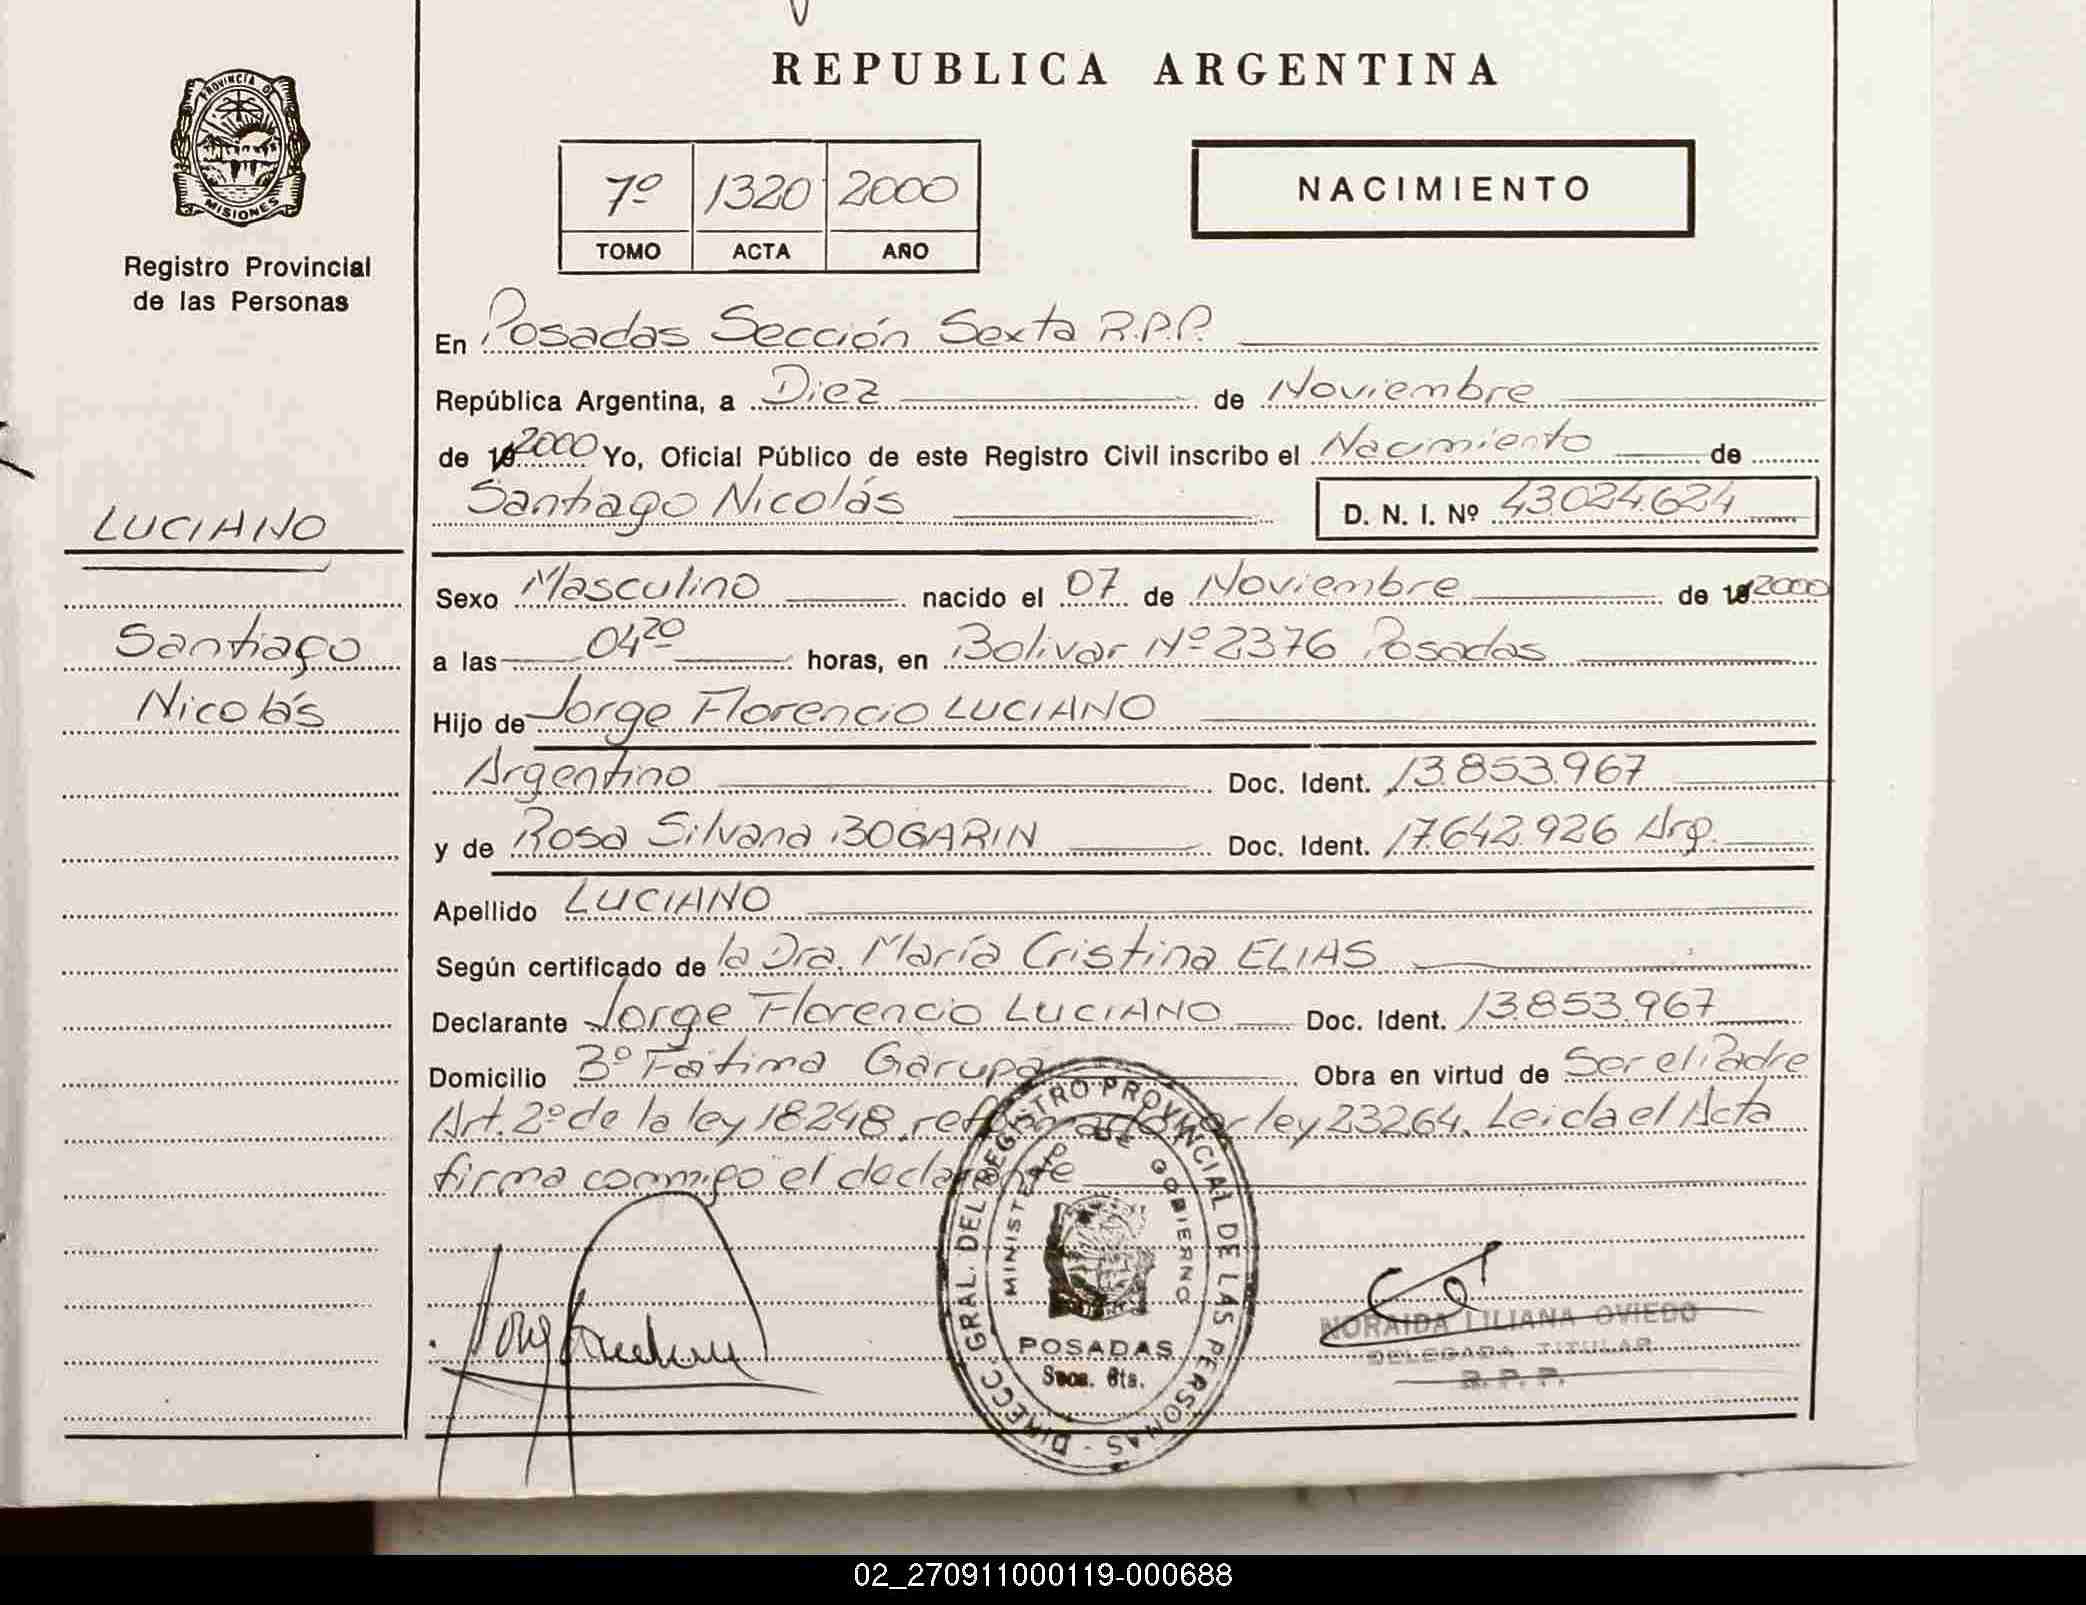 REPUBLICA ARGENTINA
PROVINCIA DE
MISIONES
Registro Provincial
de las Personas
7º 1320 2000
TOMO ACTA AÑO
NACIMIENTO
En Posadas Sección Sexta R.P.P.
República Argentina, a Diez de Noviembre
de 192000 Yo, Oficial Público de este Registro Civil inscribo el Nacimiento de
Santiago Nicolás D. N. I. Nº 43.024.624
LUCIANO
Santiago
Nicolás
Sexo Masculino nacido el 07 de Noviembre de 192000
a las 04 20 horas, en Bolivar Nº 2376 Posadas
Hijo de Jorge Florencio LUCIANO
Argentino Doc. Ident. 13.853.967
y de Rosa Silvana BOGARIN Doc. Ident. 17.642.926 Arg.
Apellido LUCIANO
Según certificado de la Dra. María Cristina ELIAS
Declarante Jorge Florencio LUCIANO Doc. Ident. 13.853.967
Domicilio Bº Fátima Garupa Obra en virtud de Ser el Padre
Art. 2º de la ley 18248, reformado por ley 23264. Leida el Acta
firma conmigo el declarante
DIRECC. GRAL. DEL REGISTRO PROVINCIAL DE LAS PERSONAS
MINISTERIO DE GOBIERNO
POSADAS
Secc. 6ta.
NORAIDA LILIANA OVIEDO
DELEGADA TITULAR
R. P. P.
02_270911000119-000688